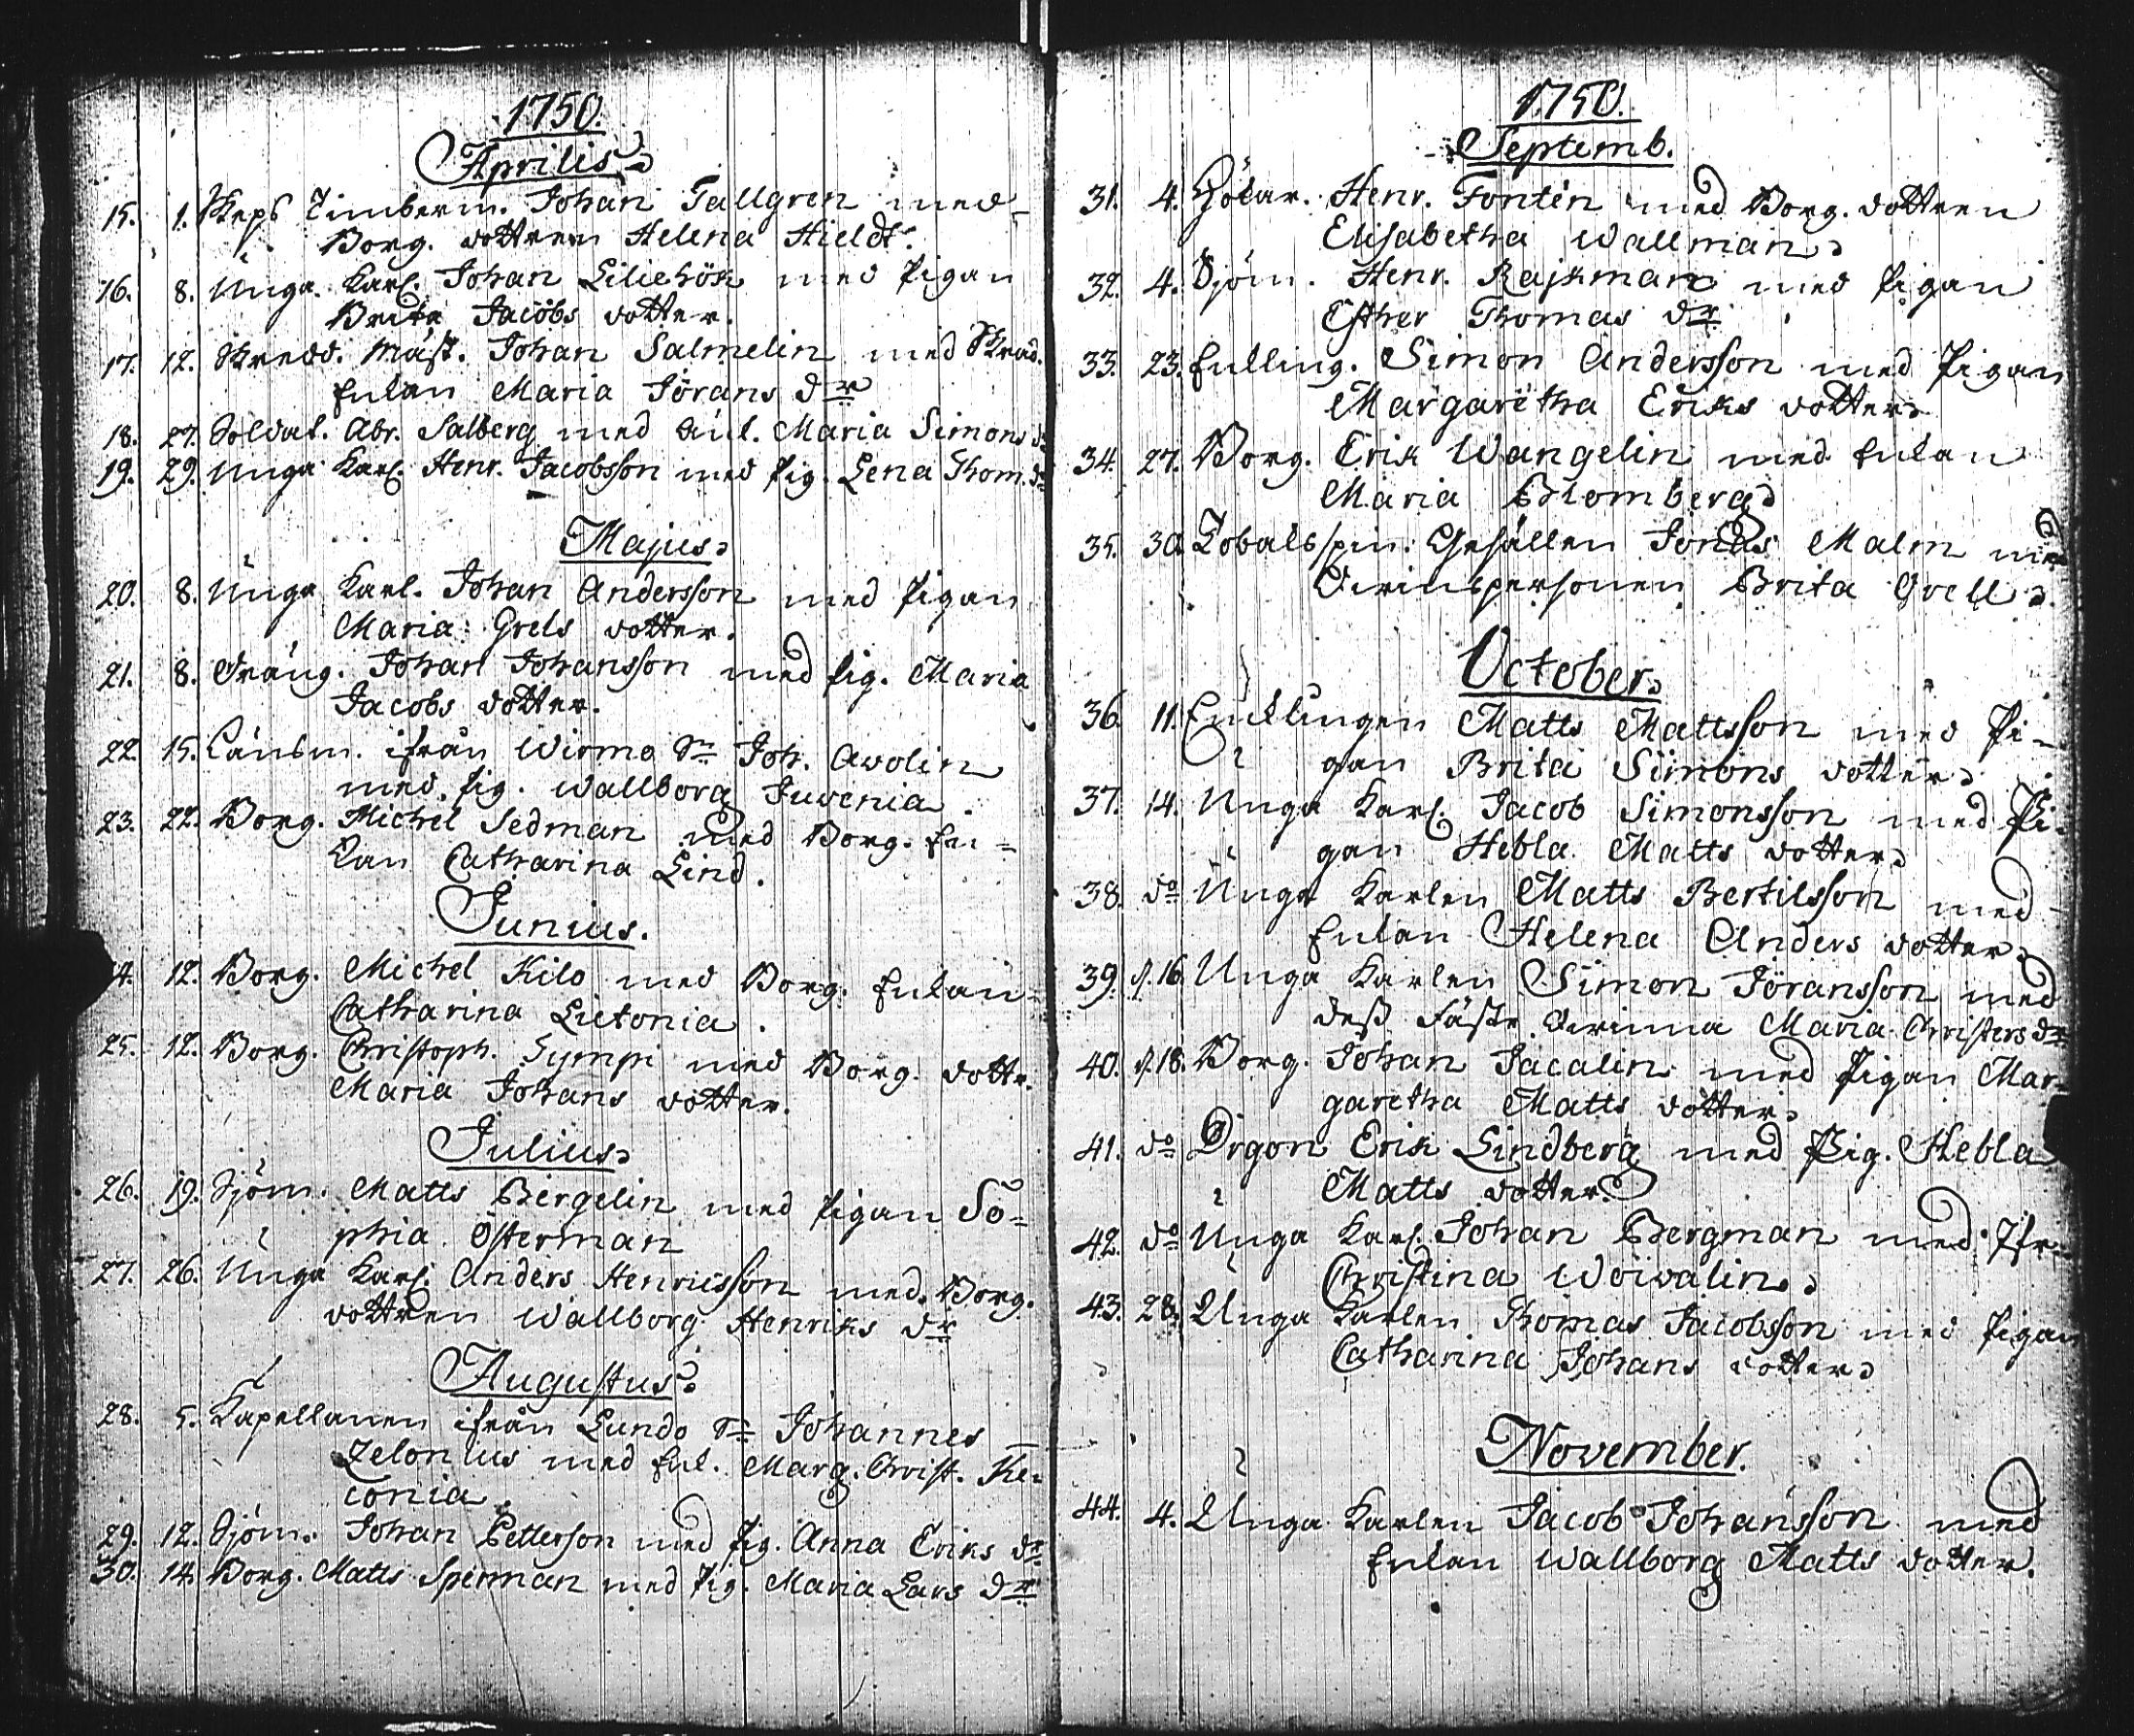 1750.
Aprilis
15. 1. Skeps Timberm. Johan Tallgren med
Borg. dottren Helena Hieldt.
16. 8. Unga Karl. Johan Liliehök med Pigan
Brita Jacobs dotter.
17. 12. Skredd. Mäst. Johan Salmelin med Skräd.
Enkan Maria Jörans dr
18. 27. Soldat. Abr. Salberg med Enk. Maria Simons dr
19. 29. Unga Karl. Henr. Jacobsson med Pig. Lena Thom. dr
Majus
20. 8. Unga Karl. Johan Andersson med Pigan
Maria Grels dotter.
21. 8. Dräng. Johan Johansson med Pig. Maria
Jacobs dotter.
22. 15. Länsm. ifrån Wirmo Hr Joh. Avolin
med Pig. Wallborg Juvenia.
23. 22. Borg. Michel Sedman med Borg. En=
kan Catharina Lind.
Junius.
4. 12. Borg. Michel Kilo med Borg. Enkan
Catharina Lietonia.
25. 12. Borg. Christoph. Sympi med Borg. dottr.
Maria Johans dotter.
Julius
26. 19. Sjöm. Matts Bergelin med Pigan So=
phia Österman
27. 26. Unga Karl. Anders Henricsson med Borg.
dottren Wallborg Henriks dr
Augustus
28. 5. Kapellanen ifrån Lundo Hr Johannes
Zelonius med Enk. Marg. Christ. Ke=
conia.
29. 12. Sjöm. Johan Petterson med Pig. Anna Eriks dr
30. 14. Borg. Matts Sperman med Pig. Maria Lars dr
1750.
Septemb.
31. 4. Hökar. Henr. Fontén med Borg. dottren
Elisabetha Wallman
32. 4. Sjöm. Henr. Rajkman med Pigan
Esther Thomas dr
33. 23. Enkling. Simon Andersson med Pigan
Margaretha Eriks dotter
34. 27. Borg. Erik Wangelin med Enkan
Maria Blomberg
35. 30. Tobaks spin. Gesällen Jonas Malm med
Qvinspersonen Brita Grell
October
36. 11. Encklingen Matts Mattsson med Pi=
gan Brita Simons dotter
37. 14. Unga Karl. Jacob Simonsson med Pi=
gan Hebla Matts dotter
38. do Unga Karlen Matts Bertilsson med
Enkan Helena Anders dotter
39. d. 16. Unga Karlen Simon Jöransson med
dess Fäste Qvinna Maria Christers dr
40. d. 18. Borg. Johan Jacalin med Pigan Mar=
garetha Matts dotter
41. do Drgon Erik Lindberg med Pig. Hebla
Matts dotter
42. do Unga Karl. Johan Bergman med Jfr.
Christina Woivalin
43. 28. Unga Karlen Thomas Jacobsson med Pigan
Catharina Johans dotter
November.
44. 4. Unga Karlen Jacob Johansson med
Enkan Wallborg Matts dotter.